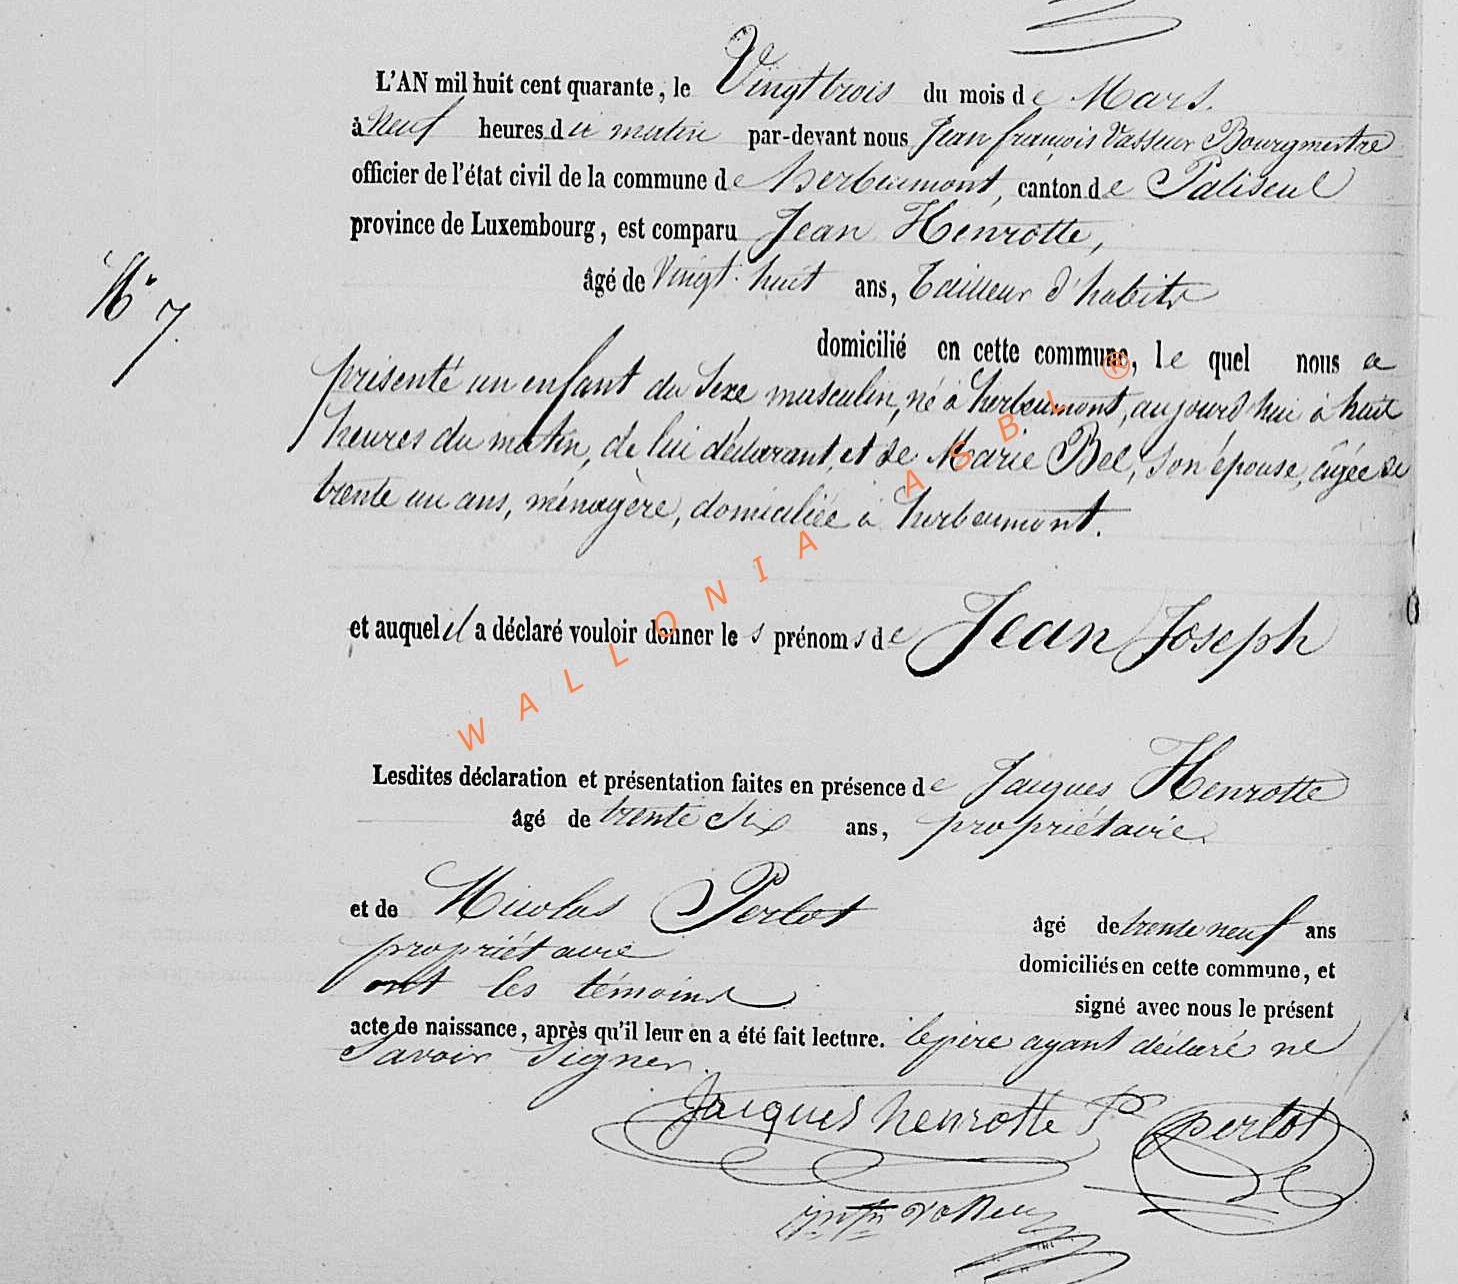 L'AN mil huit cent quarante, le Vingt trois du mois de Mars.
à Neuf heures du matin par-devant nous Jean françois Vasseur Bourgmestre
officier de l'état civil de la commune de herbeumont, canton de Paliseul
province de Luxembourg, est comparu Jean Henrotte,
N° 7.
âgé de Vingt-huit ans, Tailleur d'habits
domicilié en cette commune, le quel nous a
présenté un enfant du Sexe masculin, né à herbeumont, aujourd'hui à huit
heures du matin, de lui déclarant, et de Marie Bel, son épouse, âgée de
trente un ans, ménagère, domiciliée à herbeumont.
et auquel il a déclaré vouloir donner les prénoms de Jean Joseph
Lesdites déclaration et présentation faites en présence de Jacques Henrotte
âgé de trente Six ans, propriétaire.
et de Nicolas Perlot âgé de trente neuf ans
propriétaire domiciliés en cette commune, et
ont les témoins signé avec nous le présent
acte de naissance, après qu'il leur en a été fait lecture. le père ayant déclaré ne
Savoir Signer.
Jacques henrotte perlot
Vasseur
WALLONIA ASBL ®